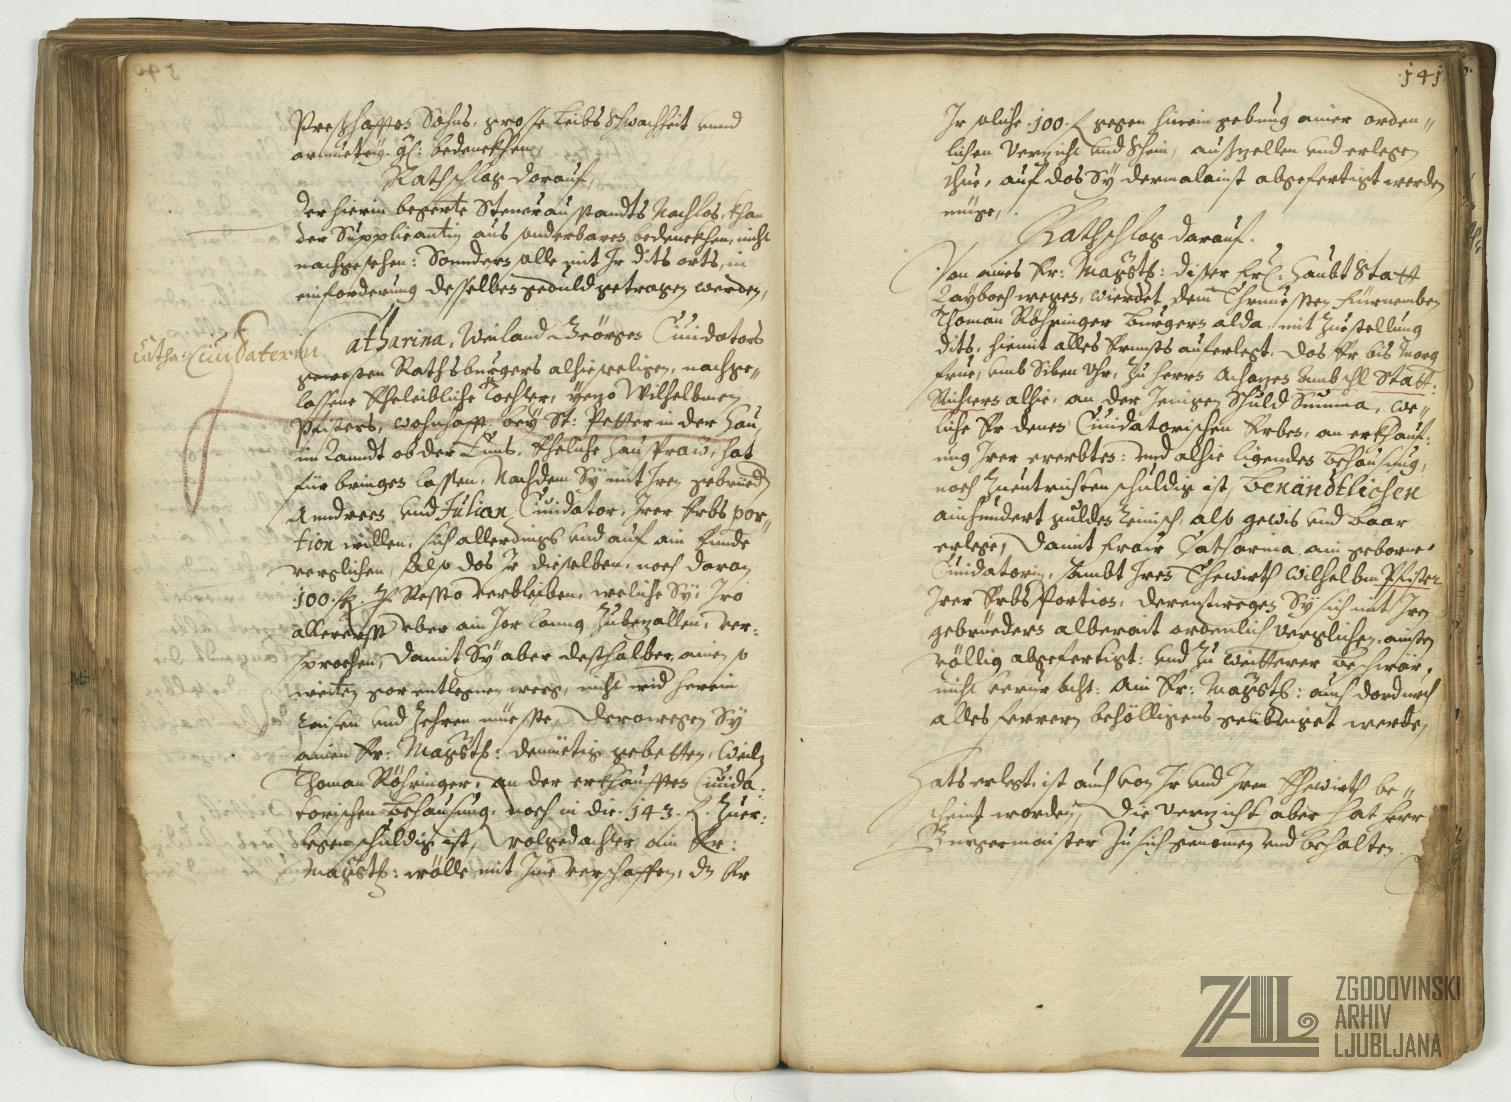 Presthafften Sohns, grosse Leibs Schwachheit unnd
armuet g. gl: bedenckhen,
Rathschlag darauf,
Der hierin begerte Steurausstandts Nachlas, khan
der Supplicantin aus sonderbaren bedenckhen, nicht
nachgesehen: Sonndern solle mit Ir dits orts, in
einforderung desselben geduld getragen werden,
Catha: Cunidatorin
Catharina, Weiland Geörgen Cunidators
gewesten Rathsburgers alhie seeligen, nachge„
lassene Eheleibliche Tochter, yezo Wilhelbmen
Pfisters, wohnhafft bey St: Petter in der Hau,
im Lanndt ob der Enns, Eheliche Haußfraw, hat
für bringen lassen, Nachdem Sy mit Iren gebrüedn
Anndreen und Julian Cunidator, Irer Erbs por„
tion willen, sich allerdings und auf ain Ennde
verglichen, Also das Ir dieselben, noch daran
100. fl. Resto verbleiben, weliche Sy, Iro
allererst uber ain Jar lanng zubezallen, ver:
sprochen, Damit Sy aber desthalben ainen so
weiten gar entlegnen weeg, nicht wid herein
Raisen und Zehren müesste, Derowegen Sy
ainen Er: Magistt: demüetig gebetten, Weil
Thoman Röhringer, an der erkhaufften Cunida:
torischen Behausung, noch in die .143. fl. Zuer:
legen schuldig ist, wolgedachter ain Er:
Magistt: wölle mit Ime verschaffen, dz Er
.141.
Ir solche .100. fl gegen hinein gebung ainer orden„
lichen Verzicht und Schein, auszellen und erlegen
thue, auf das Sy dermalainst abgefertigt werden
müge,
Rathschlag darauf.
Von aines Er: Magistt: diser Frl: Haubt Statt
Laybach wegen, wierdet dem Ehrnuessten Fürnemben
Thoman Röhringer Burgern alda, mit Zuestellung
dits, hiemit alles Ernnsts auferlegt, das Er bis morg
frue, umb Siben Uhr, Zu Herrn Achazen Statt:
Richtern alhie, an der Jenigen Schuld Summa, we„
liche Er denen Cunidatorischen Erben, an erkhauf:
ung Irer ererbten: und alhie ligenden Behausung,
noch Zuentrichten schuldig ist, Benändtlichen
ainhundert gulden Reinisch, also gewis und baar
erlege, Damit Fraw Catharina ain geborne
Cunidatorin, sambt Iren Ehewirth Wilhelbm Pfister
Irer Erbs Portion, derentwegen Sy sich mit Iren
gebrüedern alberait ordenlich verglichen, ainsten
völlig abgefertigt: und Zu weitterer beschwär,
nicht verursacht: Ain Er: Magistt: auch dardurch
alles ferrern behölligens geübriget werde,
Hats erlegt, ist auch von Ir und Iren Ehewirth be„
scheint worden, Die Verzicht aber hat Herr
Burgermaister Zu sich genomen und behalten.
ZAL
ZGODOVINSKI
ARHIV
LJUBLJANA